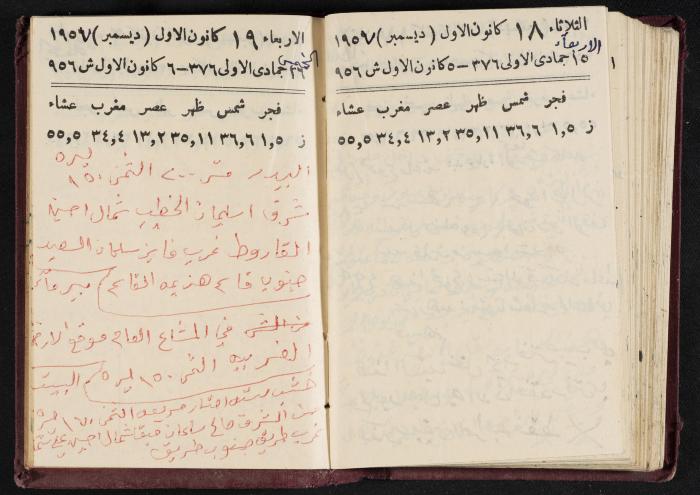 الثلاثاء ١٨ كانون الاول ( ديسمبر ) ١٩٥٧
الاربعاء
١٥ جمادى الاولى ٣٧٦ – ٥ كانون الاول ش ٩٥٦
فجر شمس ظهر عصر مغرب عشاء
ز ١,٥ ٣٦,٦ ٣٥,١١ ١٣,٢ ٣٤,٤ ٥٥,٥
الاربعاء ١٩ كانون الاول ( ديسمبر ) ١٩٥٧
الخميس
١٦ جمادى الاولى ٣٧٦ – ٦ كانون الاول ش ٩٥٦
فجر شمس ظهر عصر مغرب عشاء
ز ١,٥ ٣٦,٦ ٣٥,١١ ١٣,٢ ٣٤,٤ ٥٥,٥
البيدر متر ٢٠٠ الثمن ١٥٠ ليره
شرق اسليمان الخطيب شمال احسين
القاروط غرب فايز سلمان السعيد
جنوب قاسم هزيمه القاسم
في المشاع العام موقع الارض
الغربيه الثمن ١٥٠ ليره البيت
خشب سته امتار مربعه الثمن ليره
من الشرق شمال احسين علي
غرب طريق جنوب طريق